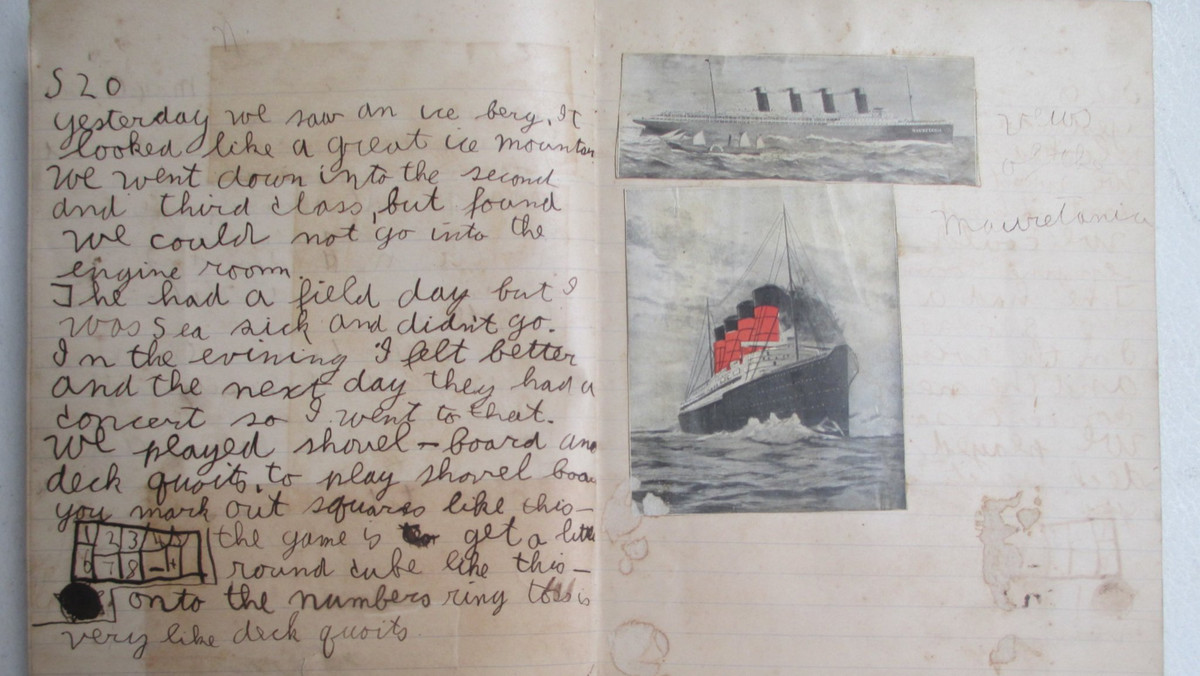 S 20
yesterday we saw an ice berg. It
looked like a great ice mountain
we went down into the second
and third class, but found
we could not go into the
engine room.
The had a field day but I
was sea sick and didn't go.
In the evining I felt better
and the next day they had a
concert so I went to that.
We played shovel-board and
deck quoits. to play shovel boa
you mark out squares like this-
1 2 3 4
the game is get a little
6 7 8 - +
round cube like this-
onto the numbers ring toss is
very like deck quoits
Mauretania